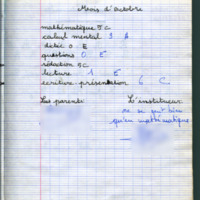 Mois d'octobre
mathématique 5 C
calcul mental 3 A
dictée 0 E
questions 0 E
rédaction 5 C
lecture 1 E
écriture présentation 6 C
Les parents L'instituteur
bien
qu'en mathématique